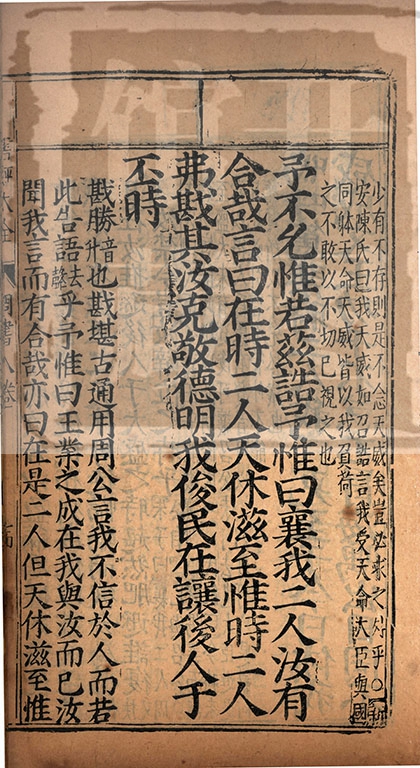 少有不存則是不念天威矣豈必求之外乎○新
安陳氏曰我天威如召誥言我受天命大臣與國
同躰天命天威皆以我自荷
之不敢以不切已視之也
予不允惟若茲誥予惟曰襄我二人汝有
合哉言曰在時二人天休滋至惟時二人
弗戡其汝克敬德明我俊民在讓後人于
丕時
戡勝音升也戡堪古通用周公言我不信於人而若
此告語去聲乎予惟曰王業之成在我與汝而已汝
聞我言而有合哉亦曰在是二人但天休滋至惟